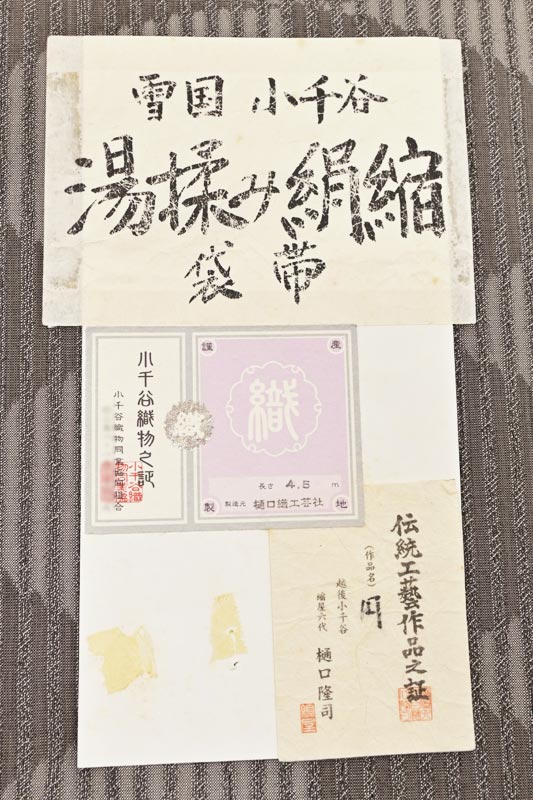 雪国 小千谷
湯揉み絹縮
袋帯
小千谷織物之証
小千谷織物同業協同組合
謹
産
織
長さ 4.5 m
製造元 樋口織工芸社
製
地
伝統工藝作品之証
(作品名)
円
越後小千谷
縮屋六代 樋口隆司